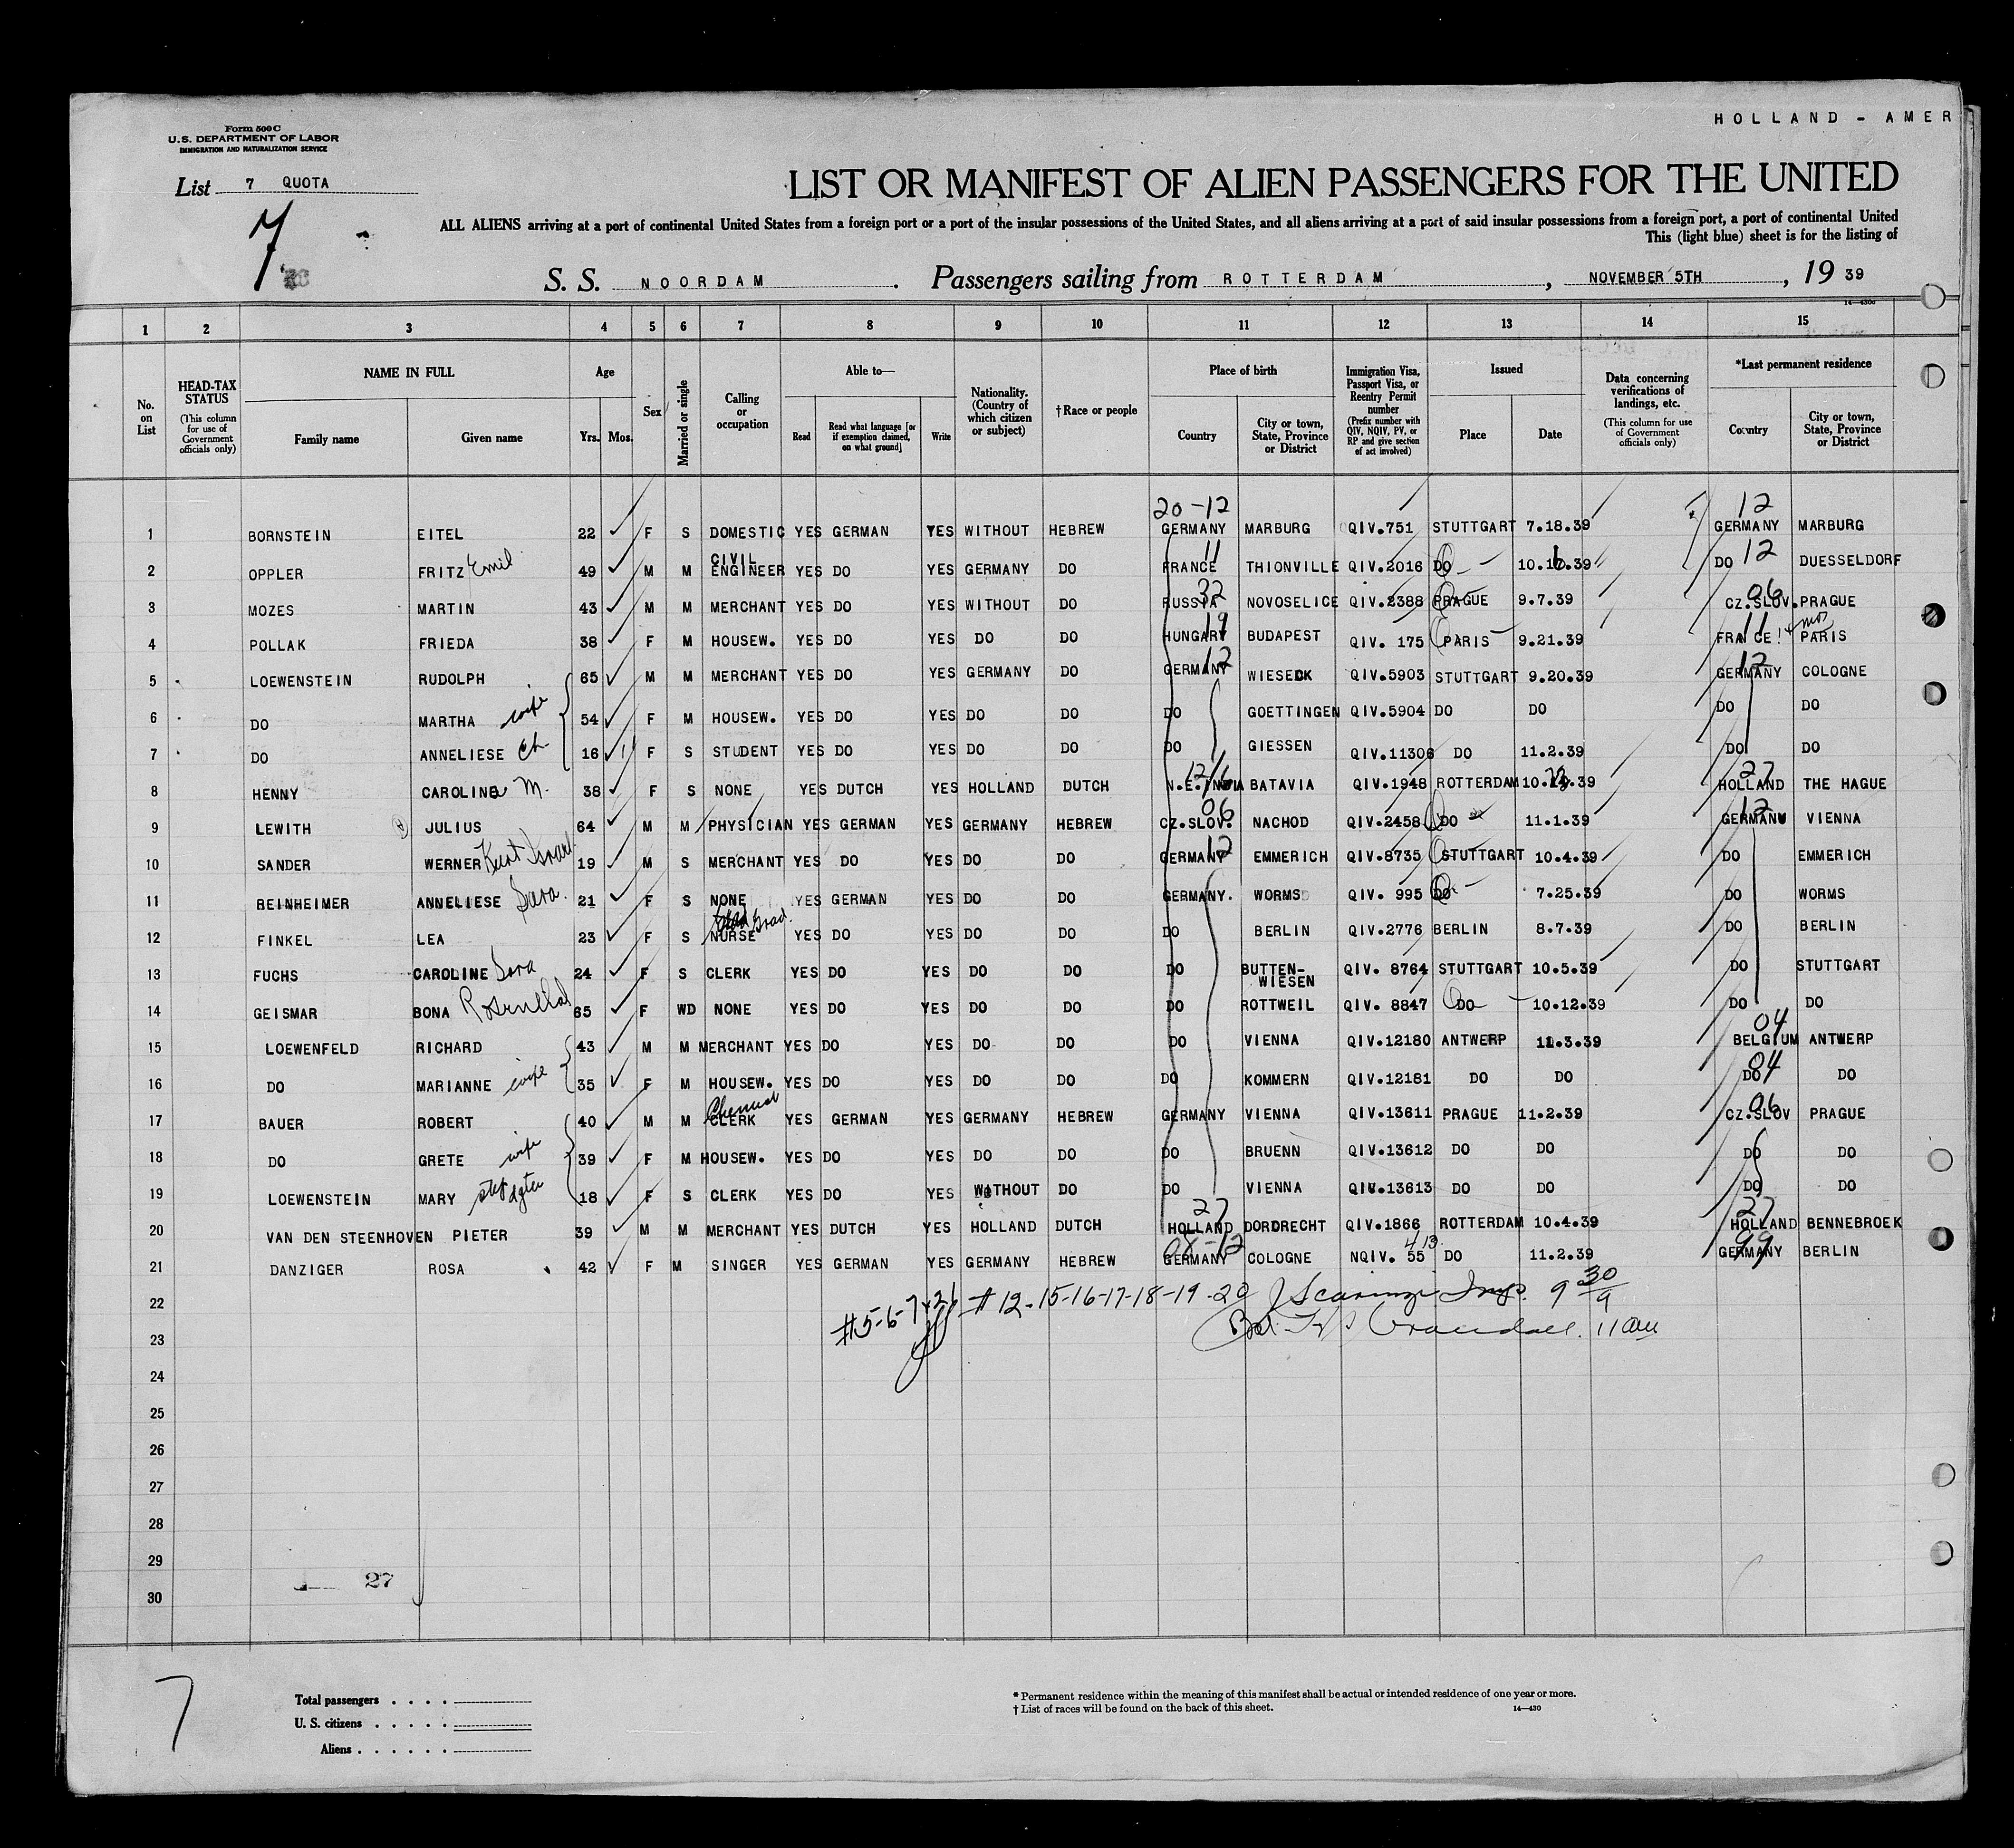 HOLLAND - AMER
Form 500 C
U.S. DEPARTMENT OF LABOR
IMMIGRATION AND NATURALIZATION SERVICE
List 7 QUOTA
7
LIST OR MANIFEST OF ALIEN PASSENGERS FOR THE UNITED
ALL ALIENS arriving at a port of continental United States from a foreign port or a port of the insular possessions of the United States, and all aliens arriving at a port of said insular possessions from a foreign port, a port of continental United
This (light blue) sheet is for the listing of
S. S. NOORDAM . Passengers sailing from ROTTERDAM , NOVEMBER 5TH , 19 39
1 2 3 4 5 6 7 8 9 10 11 12 13 14 15
No. on List
HEAD-TAX STATUS (This column for use of Government officials only)
NAME IN FULL Family name Given name
Age Yrs. Mos.
Sex
Married or single
Calling or occupation
Able to— Read Read what language [or if exemption claimed, on what ground] Write
Nationality. (Country of which citizen or subject)
†Race or people
Place of birth Country City or town, State, Province or District
Immigration Visa, Passport Visa, or Reentry Permit number (Prefix number with QIV, NQIV, PV, or RP and give section of act involved)
Issued Place Date
Data concerning verifications of landings, etc. (This column for use of Government officials only)
*Last permanent residence Country City or town, State, Province or District
20-12 12
1 BORNSTEIN EITEL 22 F S DOMESTIC YES GERMAN YES WITHOUT HEBREW GERMANY MARBURG QIV.751 STUTTGART 7.18.39 GERMANY MARBURG
2 OPPLER FRITZ Emil 49 M M CIVIL ENGINEER YES DO YES GERMANY DO FRANCE 11 THIONVILLE QIV.2016 DO 10.16.39 DO 12 DUESSELDORF
3 MOZES MARTIN 43 M M MERCHANT YES DO YES WITHOUT DO RUSSIA 32 NOVOSELICE QIV.2388 PRAGUE 9.7.39 CZ.SLOV. 06 PRAGUE
4 POLLAK FRIEDA 38 F M HOUSEW. YES DO YES DO DO HUNGARY 19 BUDAPEST QIV. 175 PARIS 9.21.39 FRANCE 11 PARIS
5 LOEWENSTEIN RUDOLPH 65 M M MERCHANT YES DO YES GERMANY DO GERMANY 12 WIESECK QIV.5903 STUTTGART 9.20.39 GERMANY 12 COLOGNE
6 DO MARTHA wife 54 F M HOUSEW. YES DO YES DO DO DO GOETTINGEN QIV.5904 DO DO DO DO
7 DO ANNELIESE ch 16 F S STUDENT YES DO YES DO DO DO GIESSEN QIV.11306 DO 11.2.39 DO DO
8 HENNY CAROLINA M. 38 F S NONE YES DUTCH YES HOLLAND DUTCH N.E.INDIA BATAVIA QIV.1948 ROTTERDAM 10. .39 HOLLAND 27 THE HAGUE
9 LEWITH JULIUS 64 M M PHYSICIAN YES GERMAN YES GERMANY HEBREW CZ.SLOV. 06 NACHOD QIV.2458 DO 11.1.39 GERMANY 12 VIENNA
10 SANDER WERNER Kurt Israel 19 M S MERCHANT YES DO YES DO DO GERMANY 12 EMMERICH QIV.8735 STUTTGART 10.4.39 DO EMMERICH
11 BEINHEIMER ANNELIESE Sara. 21 F S NONE YES GERMAN YES DO DO GERMANY. WORMS QIV. 995 DO 7.25.39 DO WORMS
12 FINKEL LEA 23 F S Grad. NURSE YES DO YES DO DO DO BERLIN QIV.2776 BERLIN 8.7.39 DO BERLIN
13 FUCHS CAROLINE Sara 24 F S CLERK YES DO YES DO DO DO BUTTEN-WIESEN QIV. 8764 STUTTGART 10.5.39 DO STUTTGART
14 GEISMAR BONA Rosenthal 65 F WD NONE YES DO YES DO DO DO ROTTWEIL QIV. 8847 DO 10.12.39 DO DO
15 LOEWENFELD RICHARD 43 M M MERCHANT YES DO YES DO DO DO VIENNA QIV.12180 ANTWERP 11.3.39 BELGIUM 04 ANTWERP
16 DO MARIANNE wife 35 F M HOUSEW. YES DO YES DO DO DO KOMMERN QIV.12181 DO DO DO 04 DO
17 BAUER ROBERT 40 M M Chemical CLERK YES GERMAN YES GERMANY HEBREW GERMANY VIENNA QIV.13611 PRAGUE 11.2.39 CZ.SLOV 06 PRAGUE
18 DO GRETE wife 39 F M HOUSEW. YES DO YES DO DO DO BRUENN QIV.13612 DO DO DO DO
19 LOEWENSTEIN MARY step dgter 18 F S CLERK YES DO YES WITHOUT DO DO VIENNA QIV.13613 DO DO DO DO
20 VAN DEN STEENHOVEN PIETER 39 M M MERCHANT YES DUTCH YES HOLLAND DUTCH HOLLAND 27 DORDRECHT QIV.1866 ROTTERDAM 10.4.39 HOLLAND 27 BENNEBROEK
21 DANZIGER ROSA 42 F M SINGER YES GERMAN YES GERMANY HEBREW GERMANY 08-12 COLOGNE NQIV. 55 4 13 DO 11.2.39 GERMANY 99 BERLIN
22 #5-6-7+21 #12-15-16-17-18-19-20 Insp. 9 30/9
23 11 am
24
25
26
27
28
29
27
30
7
Total passengers . . . .
U. S. citizens . . . . .
Aliens . . . . . .
* Permanent residence within the meaning of this manifest shall be actual or intended residence of one year or more.
† List of races will be found on the back of this sheet. 14—430